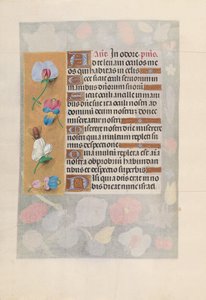 Aña In odore. p̄s.
Ad te leuaui oculos me
os qui habitas in celis
Ecce sicut oculi seruorum in
manibus dominorum suorum
Sicut oculi ancille in mani
bus domine sue ita oculi nostri ad
dominum deum nostrum donec
misereatur nostri
Miserere nostri domine miserere
nostri quia multum repleti su
mus despectione
Quia multum repleta est aīa
nostra obprobrium habundan
tibus et despectio superbis
Nisi quia dominus erat in no
bis dicat nunc israel